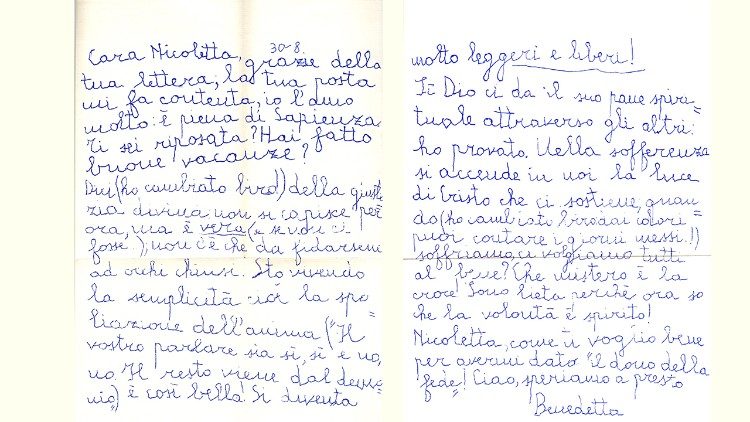 30-8.
Cara Nicoletta, grazie della
tua lettera, la tua posta
mi fa contenta, io l'amo
molto: è piena di Sapienza.
Ti sei riposata? Hai fatto
buone vacanze?
Dici (ho cambiato biro!) della giusti
zia divina non si capisce per
ora, ma è vera (e se non ci
fosse..); non c'è che da fidarsene
ad occhi chiusi. Sto vivendo
la semplicità cioè la spo=
liazione dell'anima ("Il
vostro parlare sia sì, sì e no,
no. Il resto viene dal demo=
nio) è così bella! Si diventa
molto leggeri e liberi!
Sì Dio ci dà il suo pane spiri=
tuale attraverso gli altri:
ho provato. Nella sofferenza
si accende in noi la luce
di Cristo che ci sostiene, quan=
do (ho cambiato biro dai colori
puoi contare i giorni messi!!)
soffriamo, vogliamo tutti
al bene? Che mistero è la
croce! Sono lieta perché ora so
che la volontà è spirito!
Nicoletta, come ti voglio bene
per avermi dato "il dono della
fede"! Ciao, speriamo a presto
Benedetta